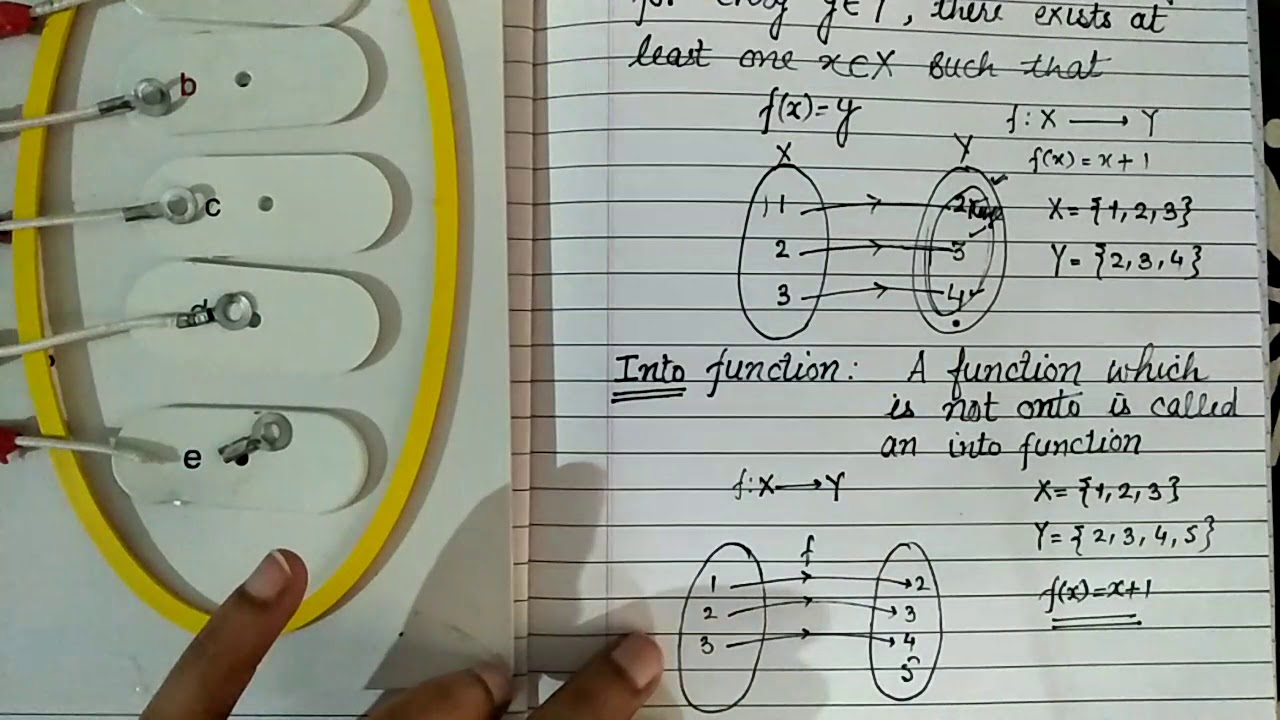 b
c
d
e
for every y∈Y, there exists at
least one x∈X such that
f(x)=y
f: X ⟶ Y
f(x) = x+1
X Y
1 2
2 3
3 4
X = {1, 2, 3}
Y = {2, 3, 4}
Into function: A function which
is not onto is called
an into function
f: X ⟶ Y
X = {1, 2, 3}
Y = {2, 3, 4, 5}
f
1 2
2 3
3 4
5
f(x) = x+1